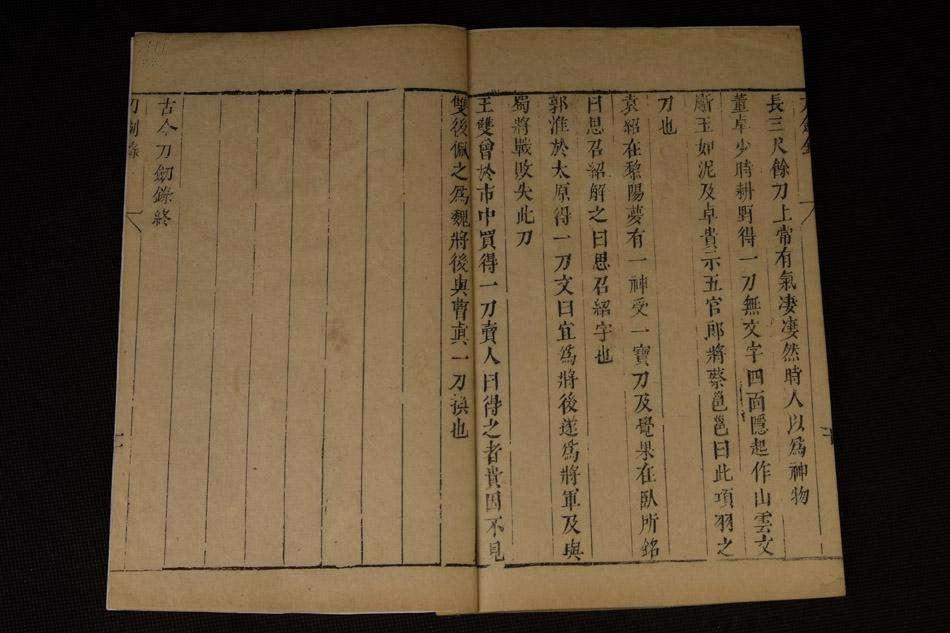 長三尺餘刀上常有氣凄凄然時人以爲神物
董卓少時耕野得一刀無文字四面隱起作山雲文
斷玉如泥及卓貴示五官郎將蔡邕邕曰此項羽之
刀也
袁紹在黎陽夢有一神受一寶刀及覺果在臥所銘
曰思召紹解之曰思召紹字也
郭淮於太原得一刀文曰宜爲將後遂爲將軍及與
蜀將戰敗失此刀
王雙曾於市中買得一刀賣人曰得之者貴因不見
雙後佩之爲魏將後與曹真一刀換也
古今刀劒錄終